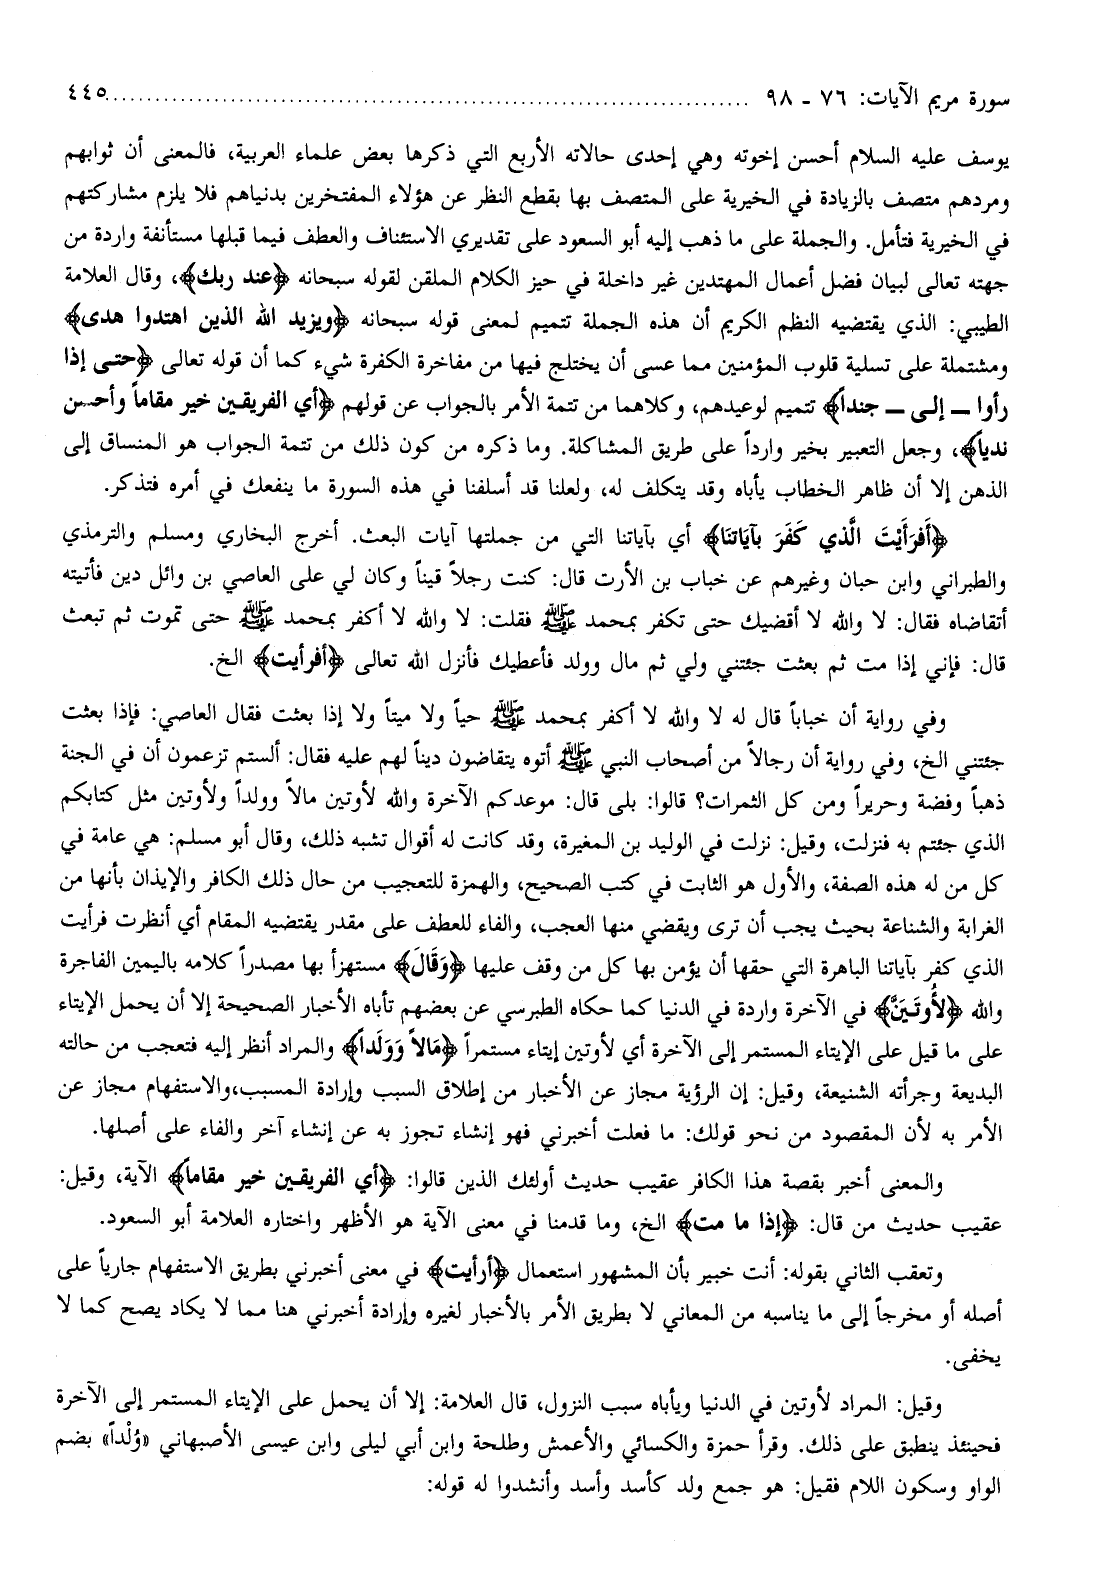 سورة مريم الآيات: ٧٦ ـ ٩٨ ........................................................................................ ٤٤٥
يوسف عليه السلام أحسن إخوته وهي إحدى حالاته الأربع التي ذكرها بعض علماء العربية، فالمعنى أن ثوابهم
ومردهم متصف بالزيادة في الخيرية على المتصف بها بقطع النظر عن هؤلاء المفتخرين بدنياهم فلا يلزم مشاركتهم
في الخيرية فتأمل. والجملة على ما ذهب إليه أبو السعود على تقديري الاستئناف والعطف فيما قبلها مستأنفة واردة من
جهته تعالى لبيان فضل أعمال المهتدين غير داخلة في حيز الكلام الملقن لقوله سبحانه ﴿عند ربك﴾، وقال العلامة
الطيبي: الذي يقتضيه النظم الكريم أن هذه الجملة تتميم لمعنى قوله سبحانه ﴿ويزيد الله الذين اهتدوا هدى﴾
ومشتملة على تسلية قلوب المؤمنين مما عسى أن يختلج فيها من مفاخرة الكفرة شيء كما أن قوله تعالى ﴿حتى إذا
رأوا ـ إلى ـ جنداً﴾ تتميم لوعيدهم، وكلاهما من تتمة الأمر بالجواب عن قولهم ﴿أي الفريقين خير مقاماً وأحسن
ندياً﴾، وجعل التعبير بخير وارداً على طريق المشاكلة. وما ذكره من كون ذلك من تتمة الجواب هو المنساق إلى
الذهن إلا أن ظاهر الخطاب يأباه وقد يتكلف له، ولعلنا قد أسلفنا في هذه السورة ما ينفعك في أمره فتذكر.
﴿أَفَرَأَيْتَ الَّذي كَفَرَ بآيَاتنَا﴾ أي بآياتنا التي من جملتها آيات البعث. أخرج البخاري ومسلم والترمذي
والطبراني وابن حبان وغيرهم عن خباب بن الأرت قال: كنت رجلاً قيناً وكان لي على العاصي بن وائل دين فأتيته
أتقاضاه فقال: لا والله لا أقضيك حتى تكفر بمحمد ﷺ فقلت: لا والله لا أكفر بمحمد ﷺ حتى تموت ثم تبعث
قال: فإني إذا مت ثم بعثت جئتني ولي ثم مال وولد فأعطيك فأنزل الله تعالى ﴿أفرأيت﴾ الخ.
وفي رواية أن خباباً قال له لا والله لا أكفر بمحمد ﷺ حياً ولا ميتاً ولا إذا بعثت فقال العاصي: فإذا بعثت
جئتني الخ، وفي رواية أن رجالاً من أصحاب النبي ﷺ أتوه يتقاضون ديناً لهم عليه فقال: ألستم تزعمون أن في الجنة
ذهباً وفضة وحريراً ومن كل الثمرات؟ قالوا: بلى قال: موعدكم الآخرة والله لأوتين مالاً وولداً ولأوتين مثل كتابكم
الذي جئتم به فنزلت، وقيل: نزلت في الوليد بن المغيرة، وقد كانت له أقوال تشبه ذلك، وقال أبو مسلم: هي عامة في
كل من له هذه الصفة، والأول هو الثابت في كتب الصحيح، والهمزة للتعجيب من حال ذلك الكافر والإيذان بأنها من
الغرابة والشناعة بحيث يجب أن ترى ويقضي منها العجب، والفاء للعطف على مقدر يقتضيه المقام أي أنظرت فرأيت
الذي كفر بآياتنا الباهرة التي حقها أن يؤمن بها كل من وقف عليها ﴿وَقَالَ﴾ مستهزأ بها مصدراً كلامه باليمين الفاجرة
والله ﴿لأُوتَيَنَّ﴾ في الآخرة واردة في الدنيا كما حكاه الطبرسي عن بعضهم تأباه الأخبار الصحيحة إلا أن يحمل الإيتاء
على ما قيل على الإيتاء المستمر إلى الآخرة أي لأوتين إيتاء مستمراً ﴿مَالاً وَوَلَداً﴾ والمراد أنظر إليه فتعجب من حالته
البديعة وجرأته الشنيعة، وقيل: إن الرؤية مجاز عن الأخبار من إطلاق السبب وإرادة المسبب،والاستفهام مجاز عن
الأمر به لأن المقصود من نحو قولك: ما فعلت أخبرني فهو إنشاء تجوز به عن إنشاء آخر والفاء على أصلها.
والمعنى أخبر بقصة هذا الكافر عقيب حديث أولئك الذين قالوا: ﴿أي الفريقين خير مقاماً﴾ الآية، وقيل:
عقيب حديث من قال: ﴿إذا ما مت﴾ الخ، وما قدمنا في معنى الآية هو الأظهر واختاره العلامة أبو السعود.
وتعقب الثاني بقوله: أنت خبير بأن المشهور استعمال ﴿أرأيت﴾ في معنى أخبرني بطريق الاستفهام جارياً على
أصله أو مخرجاً إلى ما يناسبه من المعاني لا بطريق الأمر بالأخبار لغيره وإرادة أخبرني هنا مما لا يكاد يصح كما لا
يخفى.
وقيل: المراد لأوتين في الدنيا ويأباه سبب النزول، قال العلامة: إلا أن يحمل على الإيتاء المستمر إلى الآخرة
فحينئذ ينطبق على ذلك. وقرأ حمزة والكسائي والأعمش وطلحة وابن أبي ليلى وابن عيسى الأصبهاني «وُلْداً» بضم
الواو وسكون اللام فقيل: هو جمع ولد كأسد وأسد وأنشدوا له قوله: